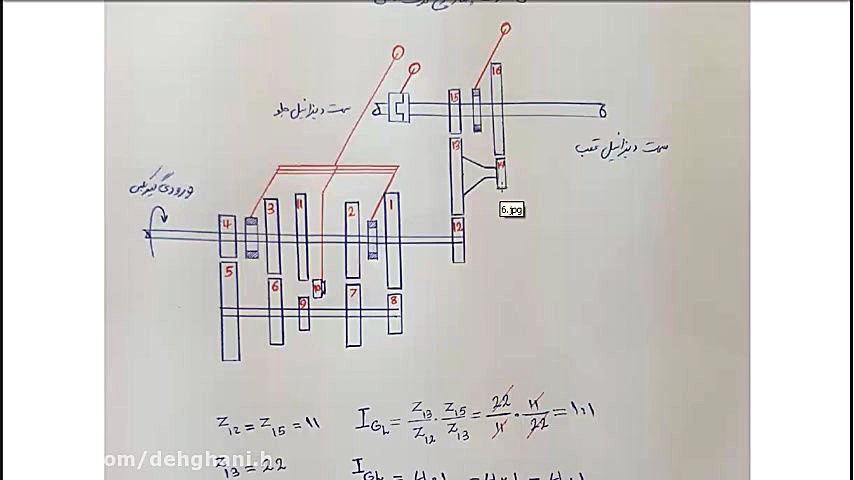 سمت دیفرانسیل جلو
سمت دیفرانسیل عقب
ورودی گیربکس
16
15
13
14
6.jpg
12
4
3
11
2
1
5
6
9
10
7
8
Z12 = Z15 = 11
I_GL = Z13/Z12 · Z15/Z13 = 22/11 · 11/22 = 1:1
Z13 = 22
om/dehghani.h